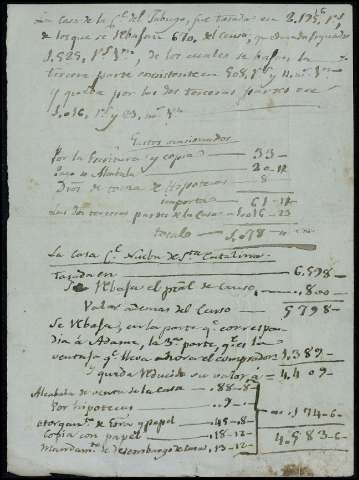 La Casa de la C.e del Jabugo, fue tasada en 2.195 16 r.s
de los que se rebajan 670. del censo, quedando liquidos
1.525, r.s v.n, de los cuales se baja la
tercera parte consistente en 508, r.s y 11. m.s v.n
y queda por las dos terceras partes en
1.016, r.s y 23, m.s v.n
Gastos ocasionados
Por la Escritura y copia 33-
Para la Alcabala 20-12
Dros de toma de Hipotecas 8-
importa 61-12
Las dos terceras partes de la Casa 1.016-23
totalo 1.078-1
La Casa C.e Nueba de S.ta Catalina
Tasada en 6.598-
Se rebaja el pral de Censo, .800-
Valor ademas del Censo 5798-
Se rebaja, en la parte q.e correspon-
dia á Adame, la 3.a parte, q.e es la
ventaja q.e lleva ahora el comprador 1.389-
y queda reducido su valor á = 4.409
Alcabala de venta de la Casa .88-8-
Por hipotecas .9-
otorgam.to de Esra y papel .45-8-
Copia con papel .18-12-
Mandam.to de desembargo de Casa .13-12-
174-6-
4.583-6-